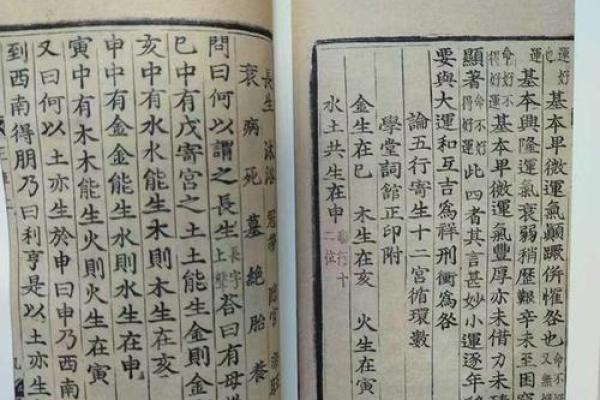 運好 基本早微運氣顛蹶併懼咎也 又無 命不
運 基本興隆運氣衰弱稍歷艱辛未至困窮
命不好 得好運 基本早微運氣豐厚亦未借力未
顯著 命不好 得好運 此四者其言甚妙小運逐年
要與大運和互吉為祥刑衝為咎
論五行寄生十二宮循環數
學堂詞館正印附
金生在巳 木生在亥 火生在
水土共生在申 二位
長生 沐浴
衰 病 死 墓 絕 胎 養
問曰何以謂之長生 長字上聲 答曰有母
巳中有戊寄宮之土土能生金則
亥中有水水能生木則木生在亥
申中有金金能生水則水生在申
寅中有木木能生火則火生在寅
又曰何以土亦生於申曰申乃西南
到西南得朋乃曰利亨是以土亦生